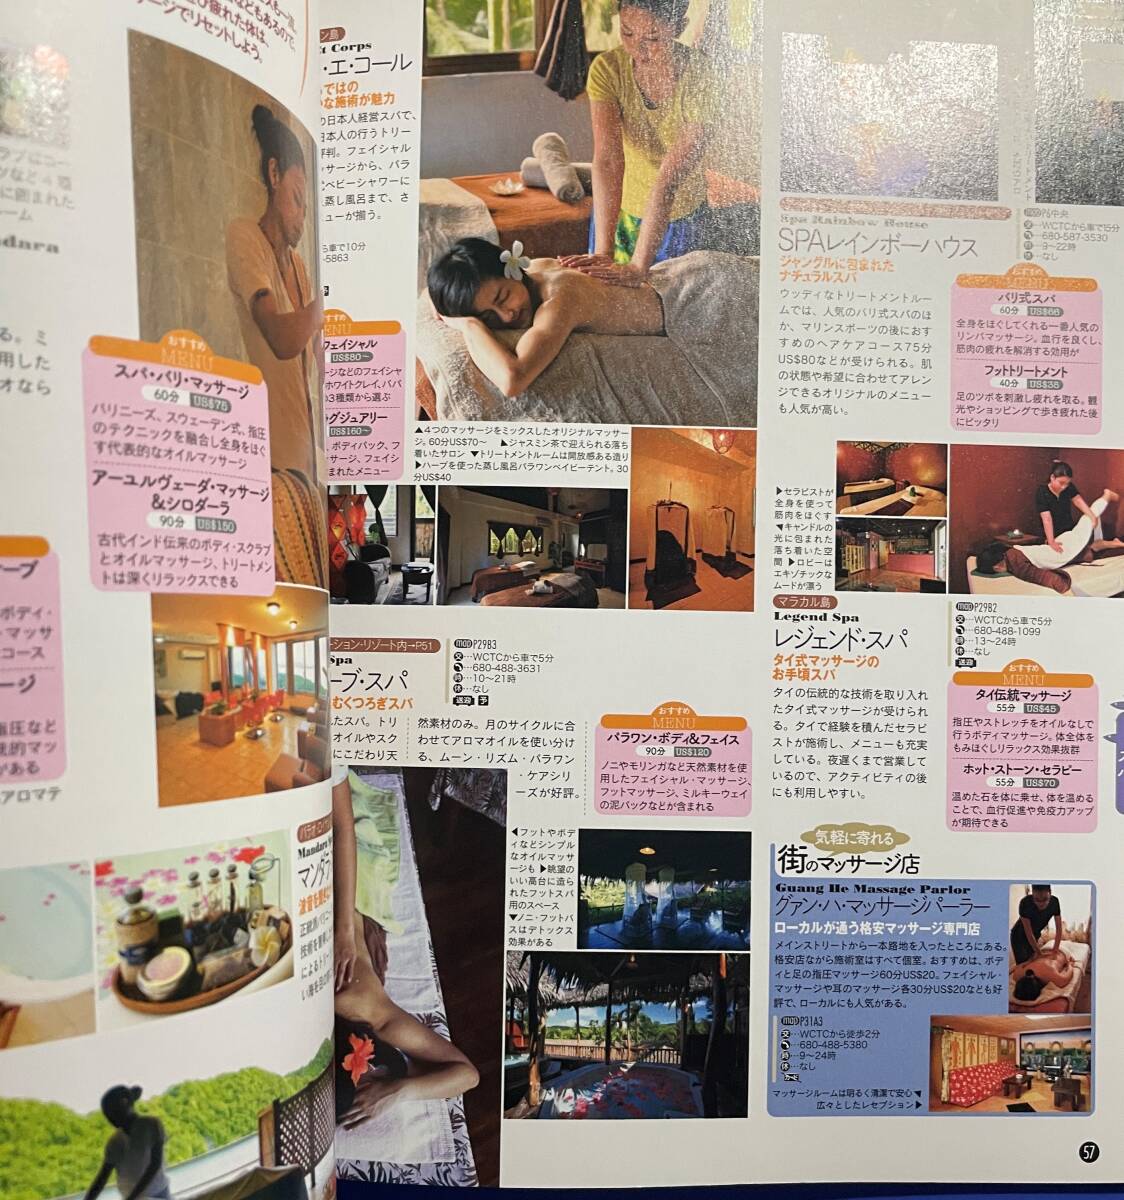 ージでリセットしよう。
ラブにコー
ツなど4種
に囲まれた
ルーム
ndara
る。ミ
用した
オなら
おすすめ
MENU
スパ・バリ・マッサージ
60分 US$75
バリニーズ、スウェーデン式、指圧
のテクニックを融合し全身をほぐ
す代表的なオイルマッサージ
アーユルヴェーダ・マッサージ
&シロダーラ
90分 US$150
古代インド伝来のボディ・スクラブ
とオイルマッサージ、トリートメン
トは深くリラックスできる
ボディ・
・マッサ
コース
ージ
指圧など
統的マッ
がある
アロマテ
マンダラ
ン島
Et Corps
・エ・コール
ではの
な施術が魅力
の日本人経営スパで、
日本人の行うトリー
評判。フェイシャル
ッサージから、パラ
ベビーシャワーに
蒸し風呂まで、さ
ューが揃う。
ら車で10分
-5863
MENU
フェイシャル
US$80〜
ージなどのフェイシャ
ホワイトクレイ、パパ
の3種類から選ぶ
グジュアリー
US$160〜
、ボディパック、フ
ッサージ、フェイシ
まれたメニュー
▲4つのマッサージをミックスしたオリジナルマッサー
ジ。60分US$70〜 ◣ジャスミン茶で迎えられる落ち
着いたサロン ▼トリートメントルームは開放感ある造り
▶ハーブを使った蒸し風呂パラワンベイビーテント。30
分US$40
ーション・リゾート内→P51
Spa
ーブ・スパ
むくつろぎスパ
たスパ。トリ
オイルやスク
にこだわり天
MAP P29B3
交…WCTCから車で5分
…680-488-3631
時…10〜21時
休…なし
送迎 予
然素材のみ。月のサイクルに合
わせてアロマオイルを使い分け
る、ムーン・リズム・パラワン
・ケアシリ
ーズが好評。
おすすめ
MENU
パラワン・ボディ&フェイス
90分 US$120
ノニやモリンガなど天然素材を使
用したフェイシャル・マッサージ、
フットマッサージ、ミルキーウェイ
の泥パックなどが含まれる
◀フットやボデ
ィなどシンプル
なオイルマッサ
ージも ▶眺望の
いい高台に造ら
れたフットスパ
用のスペース
▼ノニ・フットバ
スはデトックス
効果がある
Spa Rainbow House
SPAレインボーハウス
ジャングルに包まれた
ナチュラルスパ
MAP P6中央
交…WCTCから車で15分
…680-587-3530
時…9〜22時
休…なし
ウッディなトリートメントルー
ムでは、人気のバリ式スパのほ
か、マリンスポーツの後におす
すめのヘアケアコース75分
US$80などが受けられる。肌
の状態や希望に合わせてアレン
ジできるオリジナルのメニュー
も人気が高い。
おすすめ
MENU
バリ式スパ
60分 US$66
全身をほぐしてくれる一番人気の
リンパマッサージ。血行を良くし、
筋肉の疲れを解消する効用が
フットトリートメント
40分 US$35
足のツボを刺激し疲れを取る。観
光やショッピングで歩き疲れた後
にピッタリ
▶セラピストが
全身を使って
筋肉をほぐす
◀キャンドルの
光に包まれた
落ち着いた空
間 ▶ロビーは
エキゾチックな
ムードが漂う
マラカル島
Legend Spa
レジェンド・スパ
タイ式マッサージの
お手頃スパ
MAP P29B2
交…WCTCから車で5分
…680-488-1099
時…13〜24時
休…なし
送迎
タイの伝統的な技術を取り入れ
たタイ式マッサージが受けられ
る。タイで経験を積んだセラピ
ストが施術し、メニューも充実
している。夜遅くまで営業して
いるので、アクティビティの後
にも利用しやすい。
おすすめ
MENU
タイ伝統マッサージ
55分 US$45
指圧やストレッチをオイルなしで
行うボディマッサージ。体全体を
もみほぐしリラックス効果抜群
ホット・ストーン・セラピー
55分 US$70
温めた石を体に乗せ、体を温める
ことで、血行促進や免疫力アップ
が期待できる
気軽に寄れる
街のマッサージ店
Guang He Massage Parlor
グァン・ハ・マッサージパーラー
ローカルが通う格安マッサージ専門店
メインストリートから一本路地を入ったところにある。
格安店ながら施術室はすべて個室。おすすめは、ボデ
ィと足の指圧マッサージ60分US$20。フェイシャル・
マッサージや耳のマッサージ各30分US$20なども好
評で、ローカルにも人気がある。
MAP P31A3
交…WCTCから徒歩2分
…680-488-5380
時…9〜24時
休…なし
カード
マッサージルームは明るく清潔で安心◥
広々としたレセプション▶
57